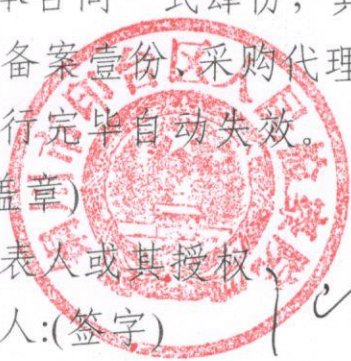 本合同一式肆份，
备案壹份、采购代理
行完毕自动失效。
盖章)
表人或其授权
人:(签字)